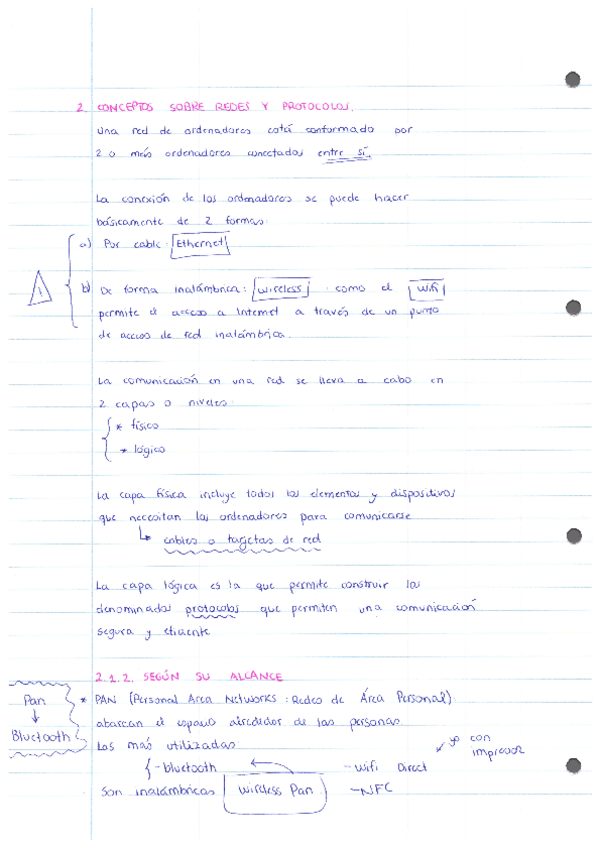 2. CONCEPTOS SOBRE REDES Y PROTOCOLOS.
Una red de ordenadores está conformada por
2 o más ordenadores conectados entre sí.
La conexión de los ordenadores se puede hacer
básicamente de 2 formas:
a) Por cable: Ethernet
b) De forma inalámbrica: wireless como el wifi
permite el acceso a Internet a través de un punto
de acceso de red inalámbrica.
La comunicación en una red se lleva a cabo en
2 capas o niveles:
* físico
* lógico
La capa física incluye todos los elementos y dispositivos
que necesitan los ordenadores para comunicarse
↳ cables o tarjetas de red
La capa lógica es la que permite construir los
denominados protocolos que permiten una comunicación
segura y eficiente
2.1.2. SEGÚN SU ALCANCE
Pan
↓
Bluetooth
* PAN (Personal Area Networks: Redes de Área Personal)
abarcan el espacio alrededor de las personas.
Las más utilizadas:
- bluetooth ← - Wifi Direct
con
impresor
Son inalámbricas Wireless Pan - NFC